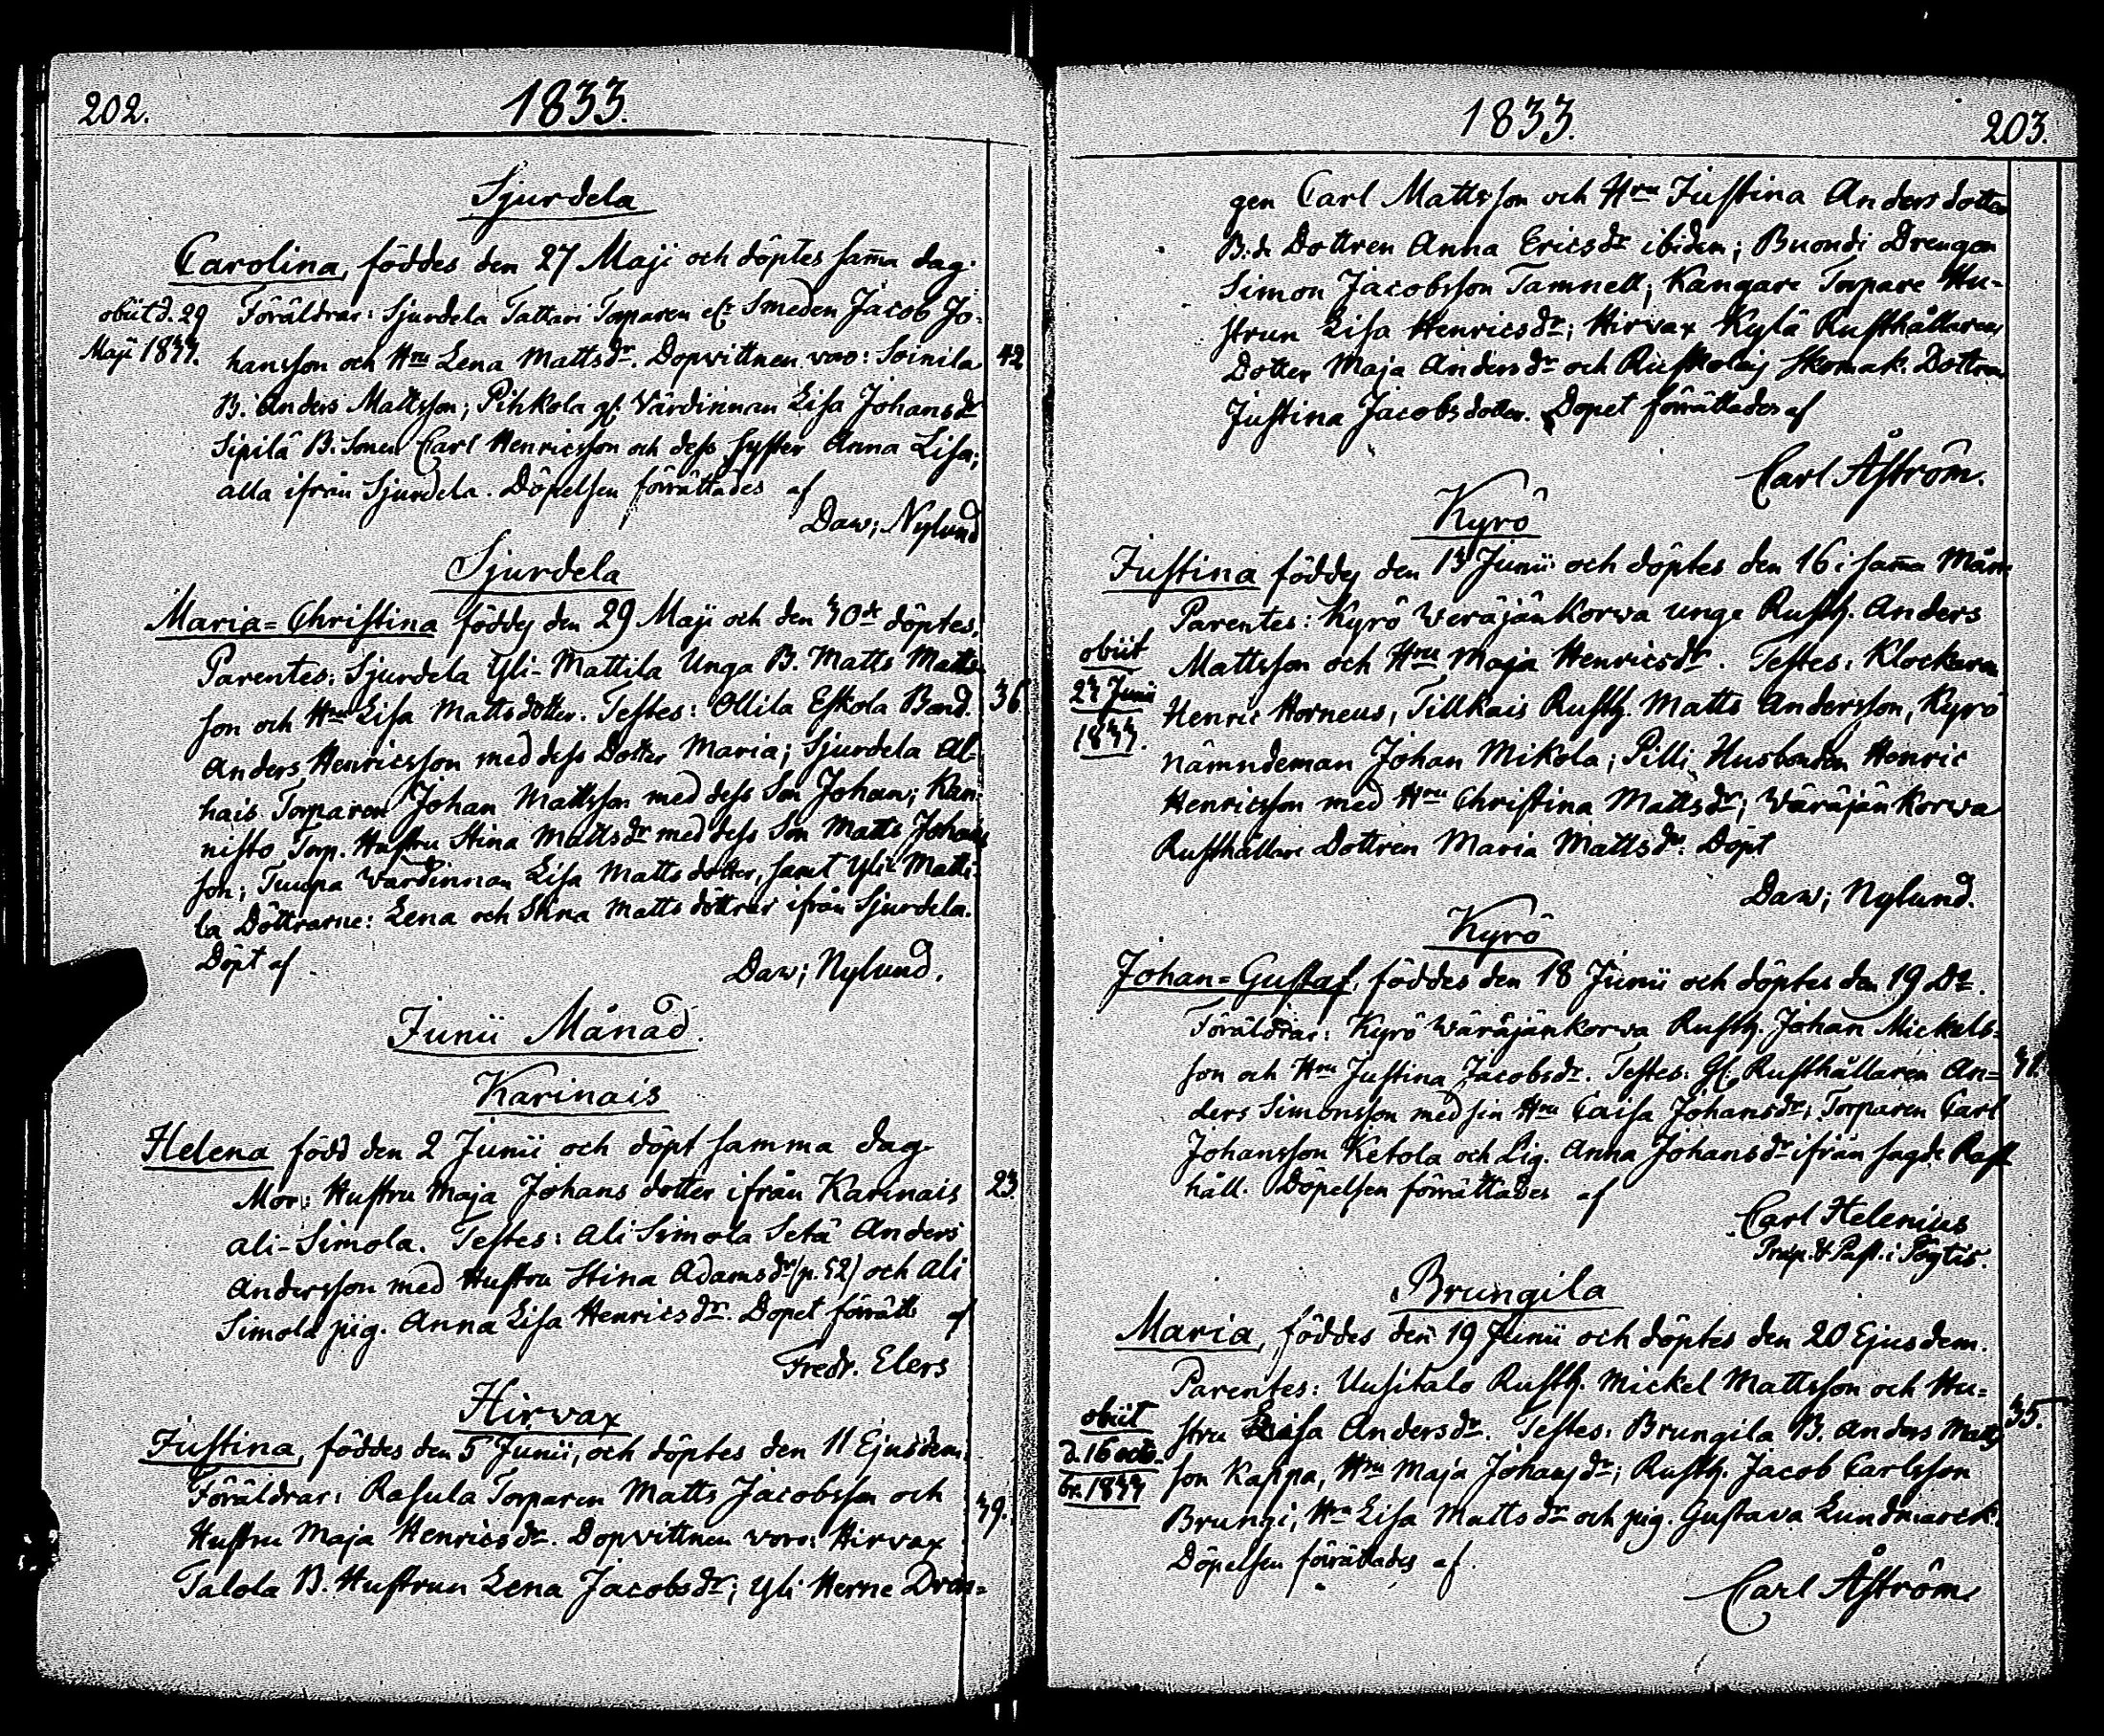 202.
1833.
Sjurdela
Carolina, föddes den 27 Maji och döptes sam̅a dag.
obiit d. 29
Maji 1833.
Föräldrar: Sjurdela Tattari Torparen Smeden Jacob Jo-
hansson och Hru Lena Mattsdr. Dopvittnen voro: Soinila
42
B. Anders Mattsson; Pihkola gf. Värdinnan Lisa Johansdr
Sipilä B. Sonen Carl Henricsson och dess syster Anna Lisa;
alla ifrån Sjurdela. Döpelsen förrättades af
Daw; Nylund
Sjurdela
Maria=Christina föddes den 29 Maji och den 30de döptes.
Parentes: Sjurdela Yli-Mattila Unga B. Matts Matts-
son och Hru Lisa Mattsdotter. Testes: Ollila Eskola Bond.
36
Anders Henricsson med dess Dotter Maria; Sjurdela Al-
hais Torparen Johan Mattsson med dess Son Johan; Kan-
nisto Torp. Hustru Stina Mattsdr med dess Son Matts Johans
son; Tuupa Värdinnan Lisa Mattsdotter, samt Yli Matti-
la Döttrarne: Lena och Stina Mattsdöttrar ifrån Sjurdela.
Döpt af
Daw; Nylund.
Junii Månad.
Karinais
Helena född den 2 Junii och döpt samma dag
Mor: Hustru Maja Johansdotter ifrån Karinais
23.
Ali-Simola. Testes: Ali Simola Setä Anders
Andersson med Hustru Stina Adamsdr (p. 52) och Ali
Simola pig. Anna Lisa Henricsdr. Dopet förrätts af
Fredr. Elers
Hirvax
Justina, föddes den 5 Junii, och döptes den 11 Ejusdem.
Föräldrar: Rasula Torparen Matts Jacobsson och
39.
Hustru Maja Henricsdr. Dopvittnen voro: Hirvax
Talola B. Hustrun Lena Jacobsdr; Yli Herne Dren-
1833.
203.
gen Carl Mattsson och Hru Justina Andersdotter
B.de Dottren Anna Ericsdr ibidem; Buondi Drengen
Simon Jacobsson Tamnell; Kangare Torpare Hu-
strun Lisa Henricsdr; Hirvax Kylä Rusthållarens
Dotter Maja Andersdr och Skomak. Dottren
Justina Jacobsdotter. Dopet förrättades af
Carl Åström.
Kyrö
Justina föddes den 13 Junii och döptes den 16 i sam̅a Mån
Parentes: Kyrö Weräjänkorwa unge Rusth. Anders
obiit
23 Junii
1833.
Mattsson och Hru Maja Henricsdr. Testes: Klockaren
Henric Horneus, Tillkais Rusth. Matts Andersson, Kyrö
nämndeman Johan Mikola; Pilli Husbonden Henric
Henricsson med Hru Christina Mattsdr; Wäräjänkorwa
Rusthållare Dottren Maria Mattsdr. Döpt
Daw; Nylund.
Kyrö
Johan=Gustaf, föddes den 18 Junii och döptes den 19 Do.
Föräldrar: Kyrö Wäräjänkorwa Rusth. Johan Mickels-
son och Hru Justina Jacobsdr. Testes: Gf. Rusthållaren An-
ders Simonsson med sin Hru Caisa Johansdr; Torparen Carl
Johansson Ketola och Pig. Anna Johansdr ifrån sagde Rust
håll. Döpelsen förrättades af
Carl Helenius
Præp. & Past. i Pöytis.
Brungila
Maria, föddes den 19 Junii och döptes den 20 Ejusdem.
Parentes: Uusitalo Rusth. Mickel Mattsson och Hu-
35.
obiit
d. 16 octo
br. 1833
stru Lisa Andersdr. Testes: Brungila B. Anders Matts
son Kappa, Hru Maja Johansdr; Rusth. Jacob Carlsson
Brungi, Hru Lisa Mattsdr och pig. Gustava Lundmarck.
Döpelsen förrättades af.
Carl Åström.